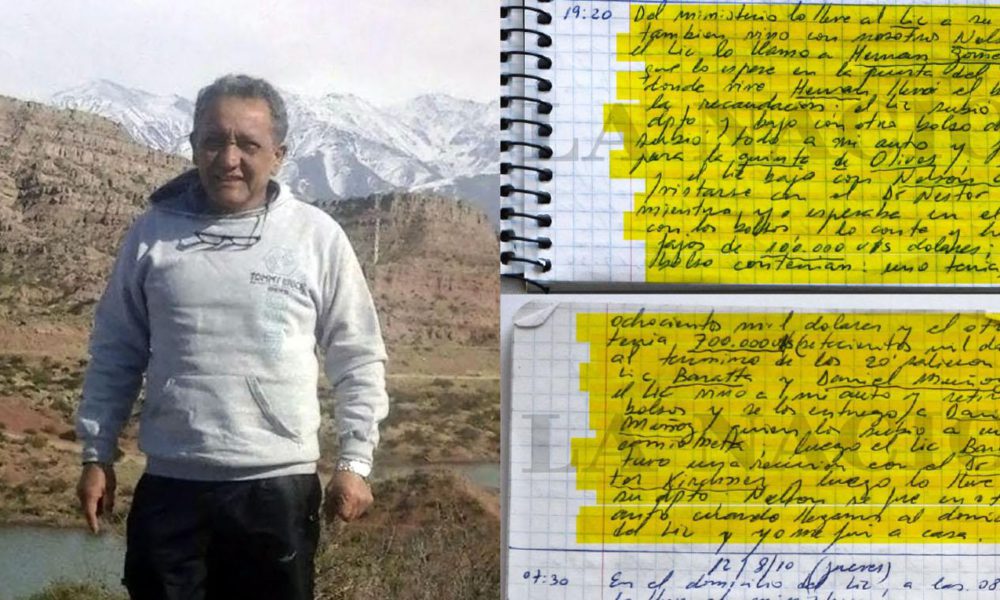 TOMMY
19:20 Del ministerio lo lleve al Lic a su
tambien vino con nosotros Nel
el Lic lo llamo a Hernan Gome
que lo espere en la puerta del
donde vive Hernan, llevó el b
la recaudación: el Lic subió
dpto. y bajo con otro bolso de
subio todo a mi auto y
para la quinta de Olivos,
el Lic bajo con Nelson
entristarse con el Dr Nestor
mientra yo esperaba en el
con los bolsos lo conte y
fajos de 100.000 u$s dolares;
bolso contenian: uno tenia
ochocientos mil dolares y el ot
tenia 700.000 u$s (setecientos mil d
al termino de los 20' salieron
Lic Baratta y Daniel Muño
el Lic vino a mi auto y reti
bolsos y se los entrego a Dani
Muñoz quien los subio a u
camioneta, luego el Lic Bara
tuvo una reunion con el Dr
tor Kirchner y luego lo lleve
su dpto Nelson se fue en
auto cuando llegamos al domi
del Lic y yo me fui a casa.
12/8/10 (jueves)
07:30 En el domicilio del Lic, a las 08
LA NACION
LA NACION